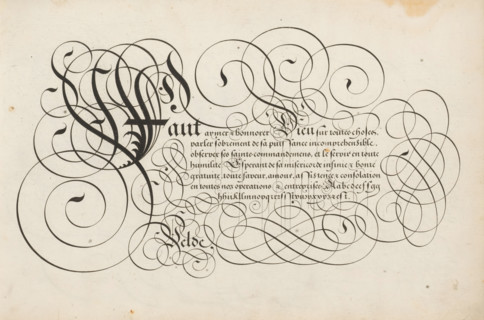 Faut aymer & honnorer Dieu sur toutes choses,
parler sobrement de sa puissance incomprehensible,
observer ses saints commandemens, et le servir en toute
humilité. Esperant de sa misericorde infinie & bonté
gratuite, toute faveur, amour, assistence & consolation
en toutes nos operations & entreprises.
Velde.